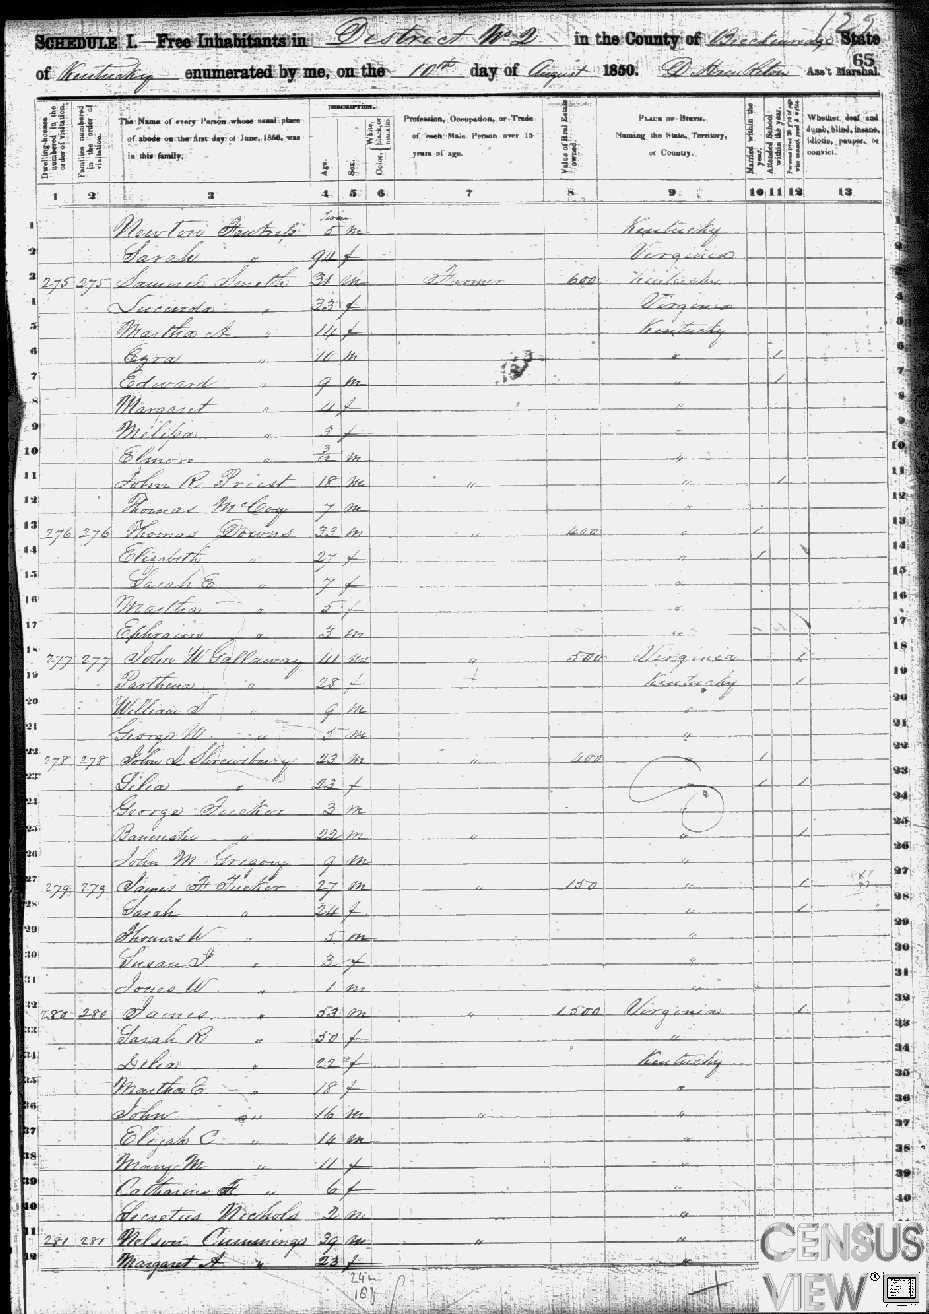 SCHEDULE I.—Free Inhabitants in District No 2 in the County of Breckenridge State
65
of Kentucky enumerated by me, on the 10th day of August 1850. Ass't Marshal.
Dwelling-houses numbered in the order of visitation.
Families numbered in the order of visitation.
The Name of every Person whose usual place of abode on the first day of June, 1850, was in this family.
DESCRIPTION.
Age.
Sex.
Color, White, black, or mulatto.
Profession, Occupation, or Trade of each Male Person over 15 years of age.
Value of Real Estate owned.
PLACE OF BIRTH. Naming the State, Territory, or Country.
Married within the year.
Attended School within the year.
Whether deaf and dumb, blind, insane, idiotic, pauper, or convict.
1 2 3 4 5 6 7 8 9 10 11 12 13
1 Newton 5 m Kentucky
2 Sarah " 94 f Virginia
3 275 275 Samuel Smith 31 m Farmer 600 Kentucky
4 Lucinda " 33 f Virginia
5 Martha A " 14 f Kentucky
6 Ezra " 10 m " 1
7 Edward " 9 m " 1
8 Margaret " 4 f "
9 Melissa " 3 f "
10 Elmore " 3/12 m "
11 John R Priest 18 m " " 1
12 Thomas McCoy 7 m "
13 276 276 Thomas Downs 33 m " 400 " 1
14 Elizabeth " 27 f " 1
15 Sarah E " 7 f "
16 Martha " 5 f "
17 Ephraim " 3 m "
18 277 277 John W Gallaway 41 m " 500 Virginia 1
19 Parthena " 28 f Kentucky 1
20 William S " 9 m "
21 George W " 5 m "
22 278 278 John S Shrewsbury 23 m " 400 " 1
23 " 23 f " 1 1
24 George Tucker 3 m "
25 " 22 m " " 1
26 John M Gregory 9 m "
27 279 279 James H Tucker 27 m " 150 " 1
28 Sarah " 24 f " 1
29 Thomas W " 5 m "
30 Susan J " 3 f "
31 Jones W " 1 m "
32 280 280 James " 53 m " 1500 Virginia 1
33 Sarah R " 50 f "
34 Delia " 22 f Kentucky
35 Martha E " 18 f "
36 John " 16 m " "
37 Elijah C " 14 m "
38 Mary M " 11 f "
39 Catharine " 6 f "
40 Nichols 2 m "
41 281 281 Nelson Cummings 39 m " "
42 Margaret A " 23 f "
CENSUS
VIEW®